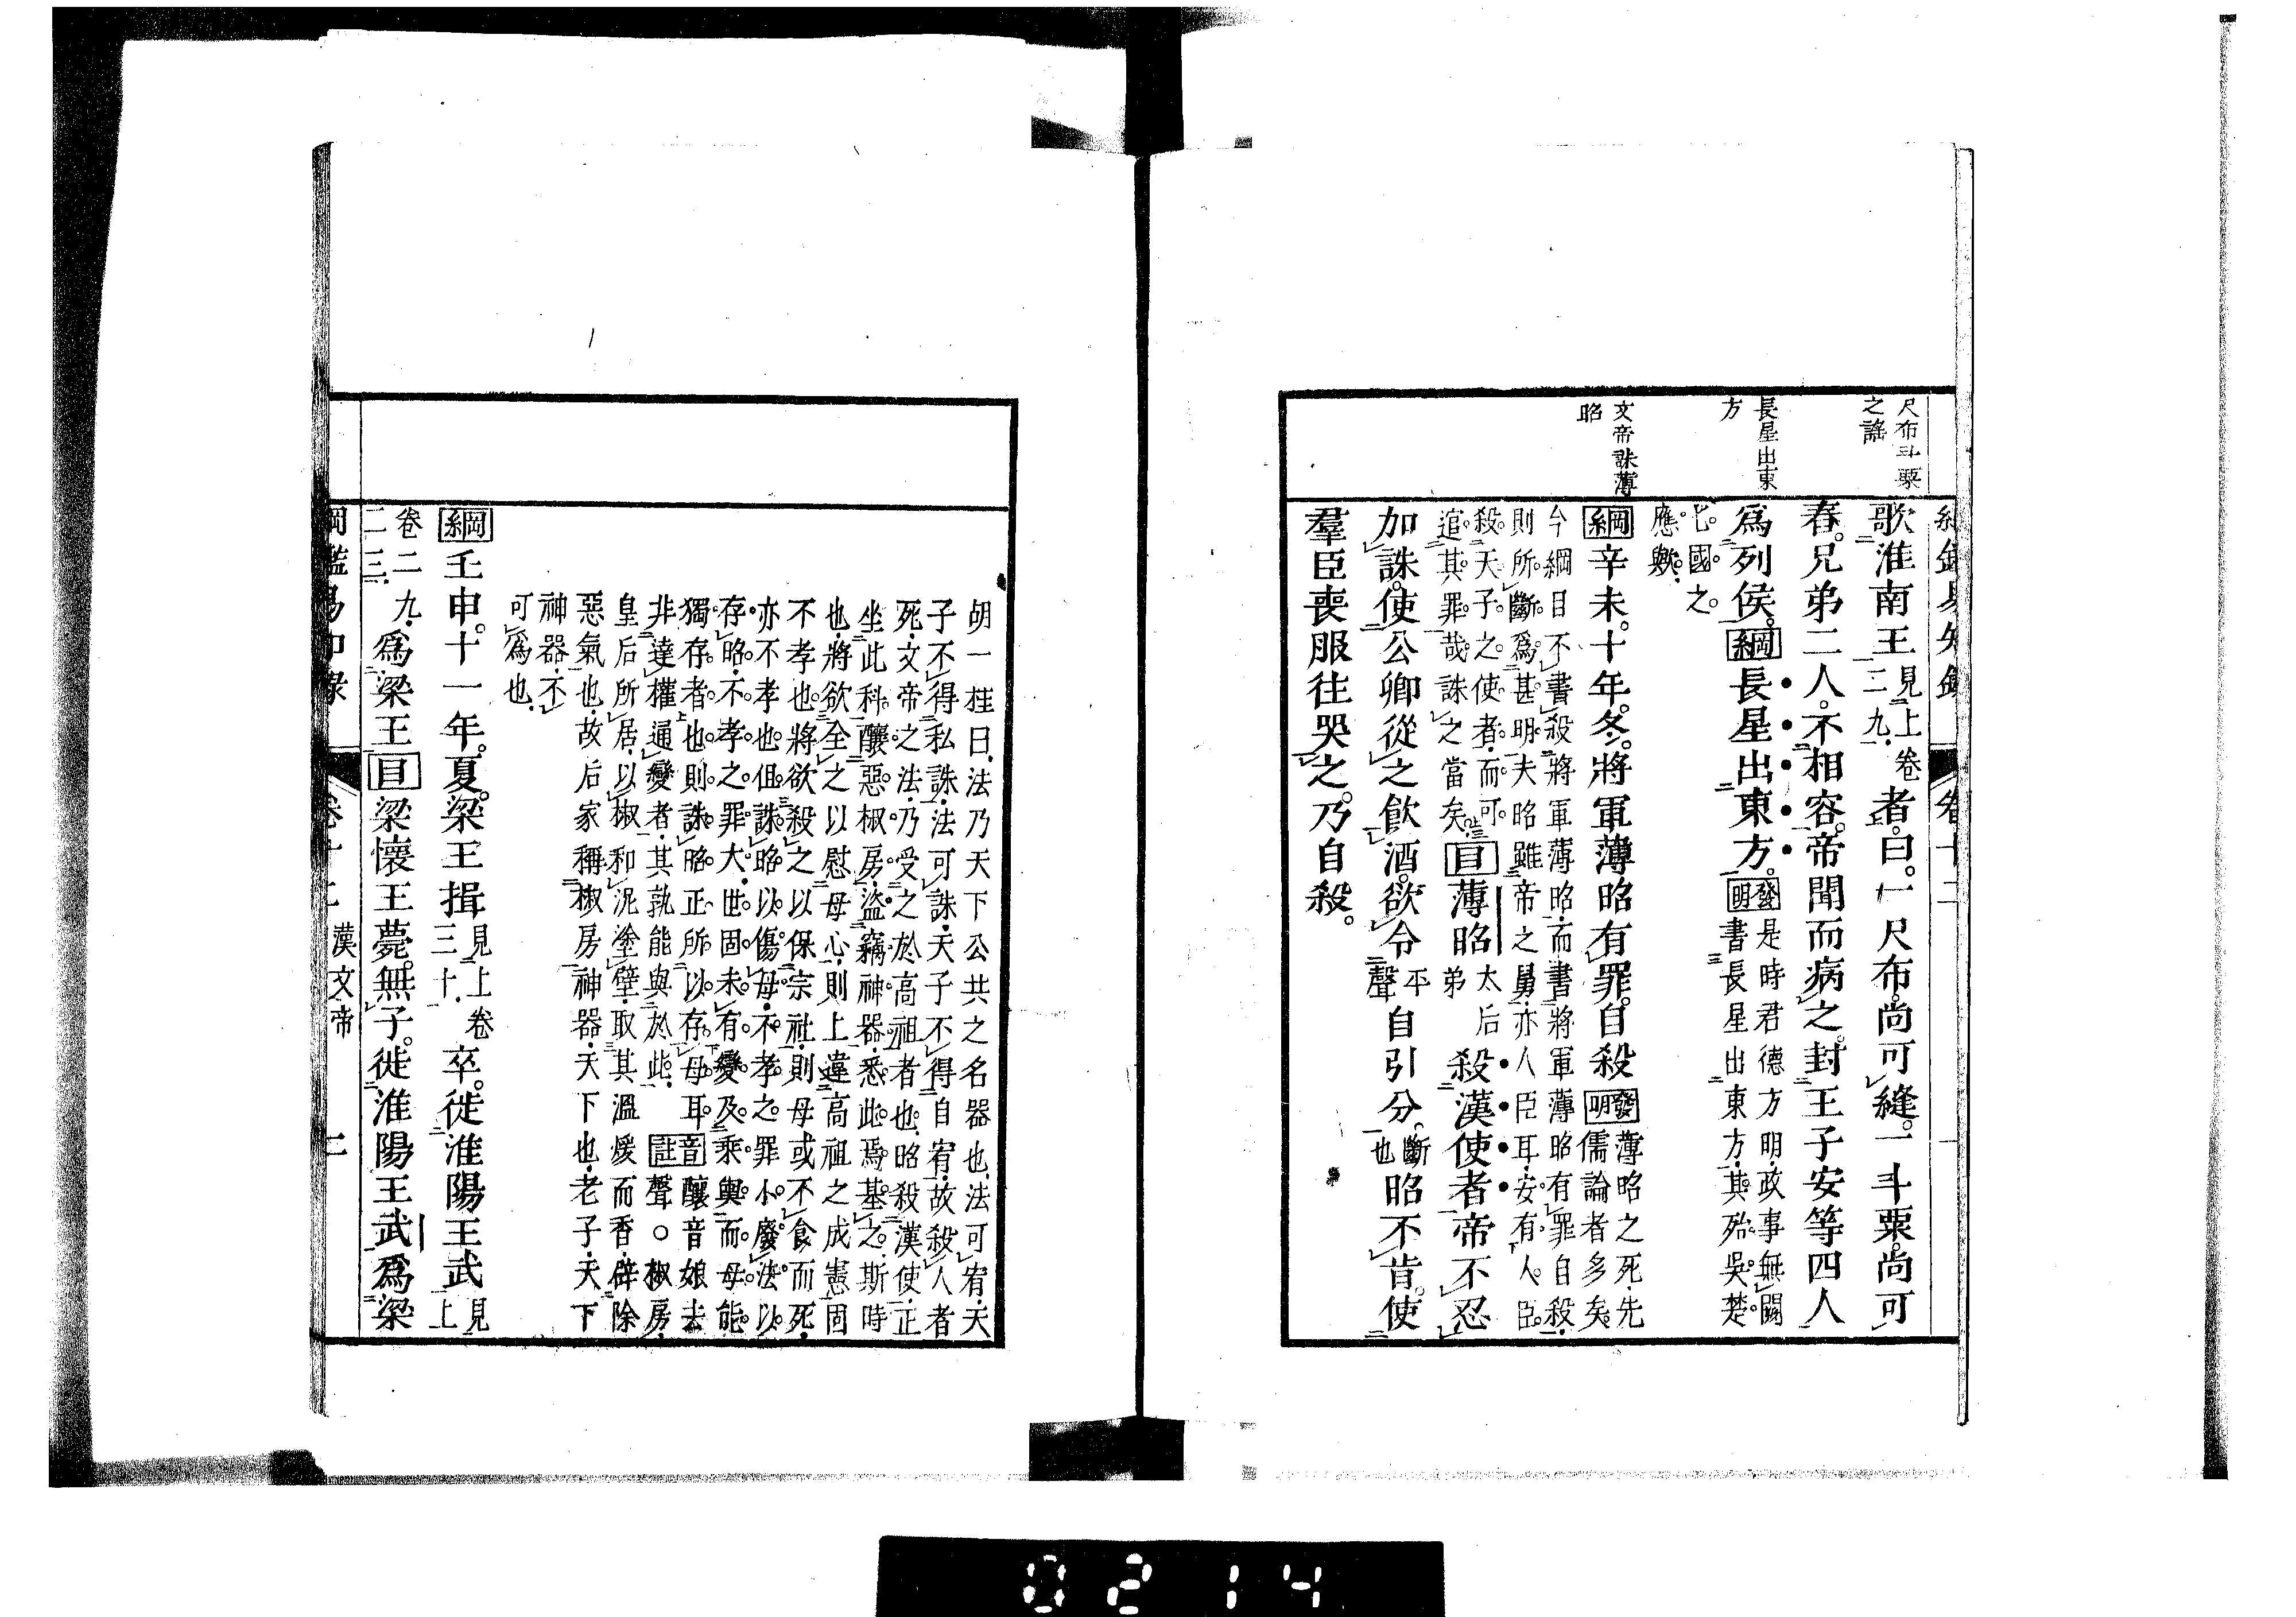 尺布斗粟
之謠
長星出東
方
文帝誅薄
昭
卷十二
歌淮南王見上卷二九者曰一尺布尚可縫一斗粟尚可
春兄弟二人不相容帝聞而病之封王子安等四人
爲列侯綱長星出東方發明是時君德方明政事無闕
書長星出東方其殆吳楚
七國之
應歟
綱辛未十年冬將軍薄昭有罪自殺發明薄昭之死先
儒論者多矣
今綱目不書殺將軍薄昭而書將軍薄昭有罪自殺
則所斷爲甚明夫昭雖帝之舅亦人臣耳安有人臣
殺天子之使者而可
追其罪哉誅之當矣目薄昭太后弟殺漢使者帝不忍
加誅使公卿從之飲酒欲令平聲自引分斷也昭不肯使
羣臣喪服往哭之乃自殺
胡一桂曰法乃天下公共之名器也法可宥天
子不得私誅法可誅天子不得自宥故殺人者
死文帝之法乃受之於高祖者也昭殺漢使正
坐此科釀惡椒房盜竊神器悉此焉基之斯時
也將欲全之以慰母心則上違高祖之成憲固
不孝也將欲殺之以保宗社則母或不食而死
亦不孝也但誅昭以傷母不孝之罪小廢法以
存昭不孝之罪大世固未有變及乘輿而母能
獨存者也則誅昭正所以存母耳音註釀音娘去
非達權通變者其孰能與於此聲○椒房
皇后所居以椒和泥塗壁取其溫煖而香辟除
惡氣也故后家稱椒房神器天下也老子天下
神器不
可爲也
綱壬申十一年夏梁王揖見上卷三十卒徙淮陽王武見上
卷二九二三爲梁王目梁懷王薨無子徙淮陽王武爲梁
綱鑑易知錄 卷十二 漢文帝 二